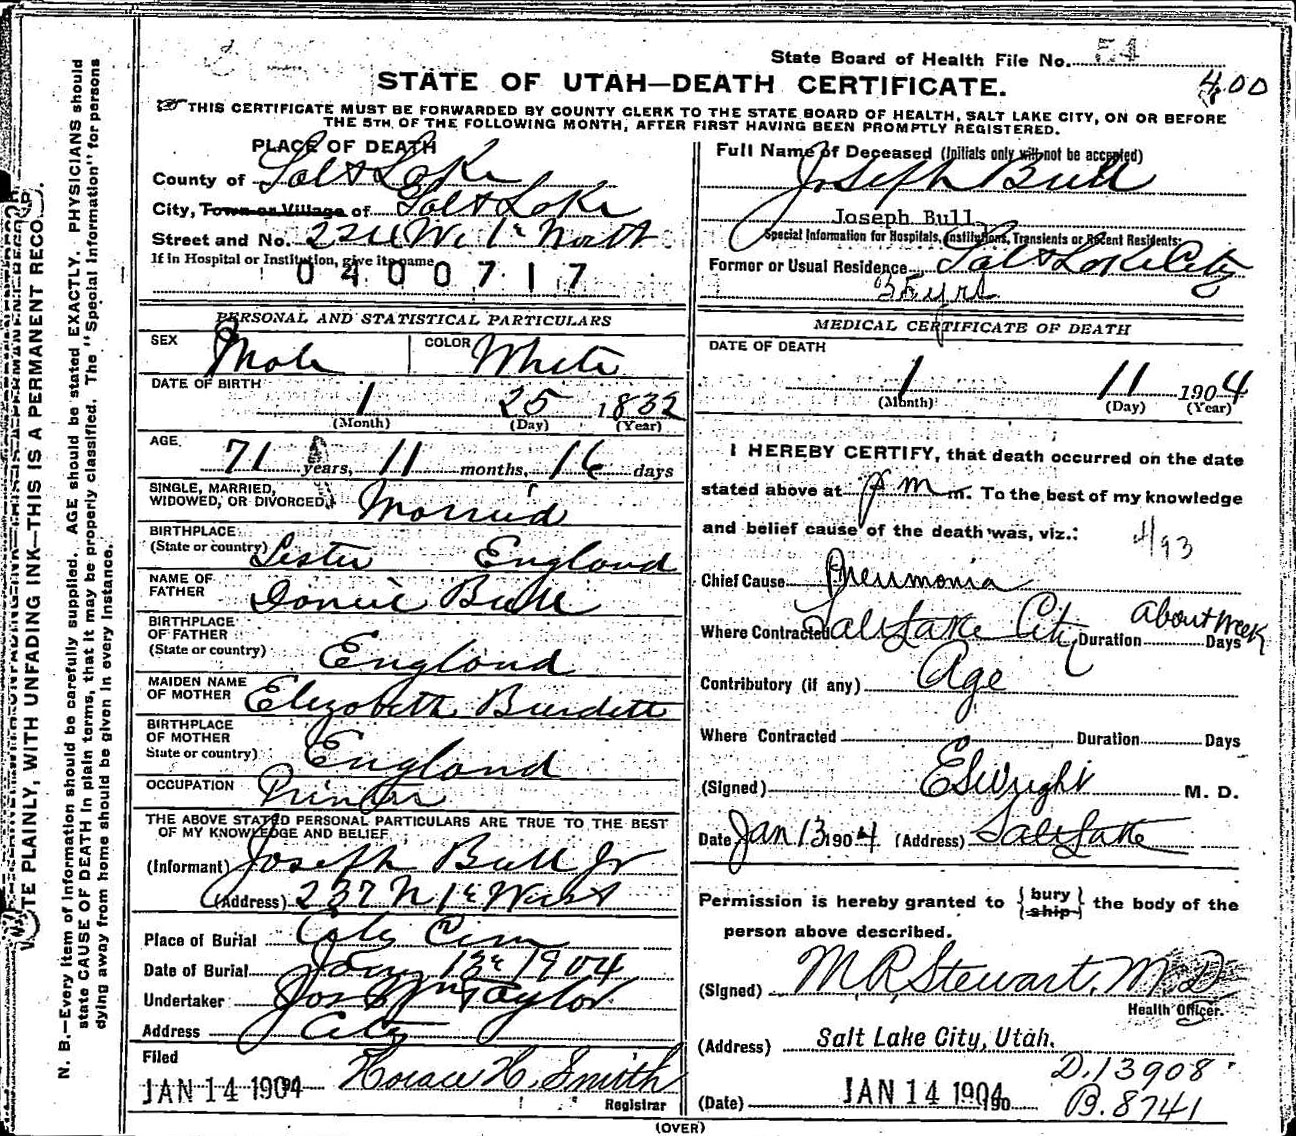 State Board of Health File No. E4
400
STATE OF UTAH—DEATH CERTIFICATE.
THIS CERTIFICATE MUST BE FORWARDED BY COUNTY CLERK TO THE STATE BOARD OF HEALTH, SALT LAKE CITY, ON OR BEFORE
THE 5TH OF THE FOLLOWING MONTH, AFTER FIRST HAVING BEEN PROMPTLY REGISTERED.
PLACE OF DEATH
County of Salt Lake
City, Town or Village of Salt Lake
Street and No. W. 1st North
If in Hospital or Institution, give its name
0400717
PERSONAL AND STATISTICAL PARTICULARS
SEX Male COLOR White
DATE OF BIRTH
1 25 1832
(Month) (Day) (Year)
AGE.
71 years, 11 months, 16 days
SINGLE, MARRIED,
WIDOWED, OR DIVORCED, Married
BIRTHPLACE
(State or country) Lester England
NAME OF
FATHER Daniel Bull
BIRTHPLACE
OF FATHER
(State or country) England
MAIDEN NAME
OF MOTHER Elizabeth Burdett
BIRTHPLACE
OF MOTHER
State or country) England
OCCUPATION Printer
THE ABOVE STATED PERSONAL PARTICULARS ARE TRUE TO THE BEST
OF MY KNOWLEDGE AND BELIEF
(Informant) Joseph Bull Jr
(Address) 237 N 1st West
Place of Burial City Cem
Date of Burial Jany 13th 1904
Undertaker Jos Wm Taylor
Address City
Filed
JAN 14 1904 Horace H. Smith
Registrar
Full Name of Deceased (Initials only will not be accepted)
Joseph Bull
Joseph Bull
Special Information for Hospitals, Institutions, Transients or Recent Residents:
Former or Usual Residence Salt Lake City
35 yrs
MEDICAL CERTIFICATE OF DEATH
DATE OF DEATH
1 11 1904
(Month) (Day) (Year)
I HEREBY CERTIFY, that death occurred on the date
stated above at P m m. To the best of my knowledge
and belief cause of the death was, viz.:
493
Chief Cause Pneumonia
Where Contracted Salt Lake City Duration About Week Days
Contributory (if any) Age
Where Contracted Duration Days
(Signed) E S Wright M. D.
Date Jan 13 1904 (Address) Salt Lake
Permission is hereby granted to {bury ship} the body of the
person above described.
(Signed) M. R. Stewart, M.D.
Health Officer.
(Address) Salt Lake City, Utah.
D. 13908
(Date) JAN 14 1904 190
B. 8741
(OVER)
WRITE PLAINLY, WITH UNFADING INK—THIS IS A PERMANENT RECORD.
N. B.—Every item of information should be carefully supplied. AGE should be stated EXACTLY. PHYSICIANS should
state CAUSE OF DEATH in plain terms, that it may be properly classified. The "Special Information" for persons
dying away from home should be given in every instance.